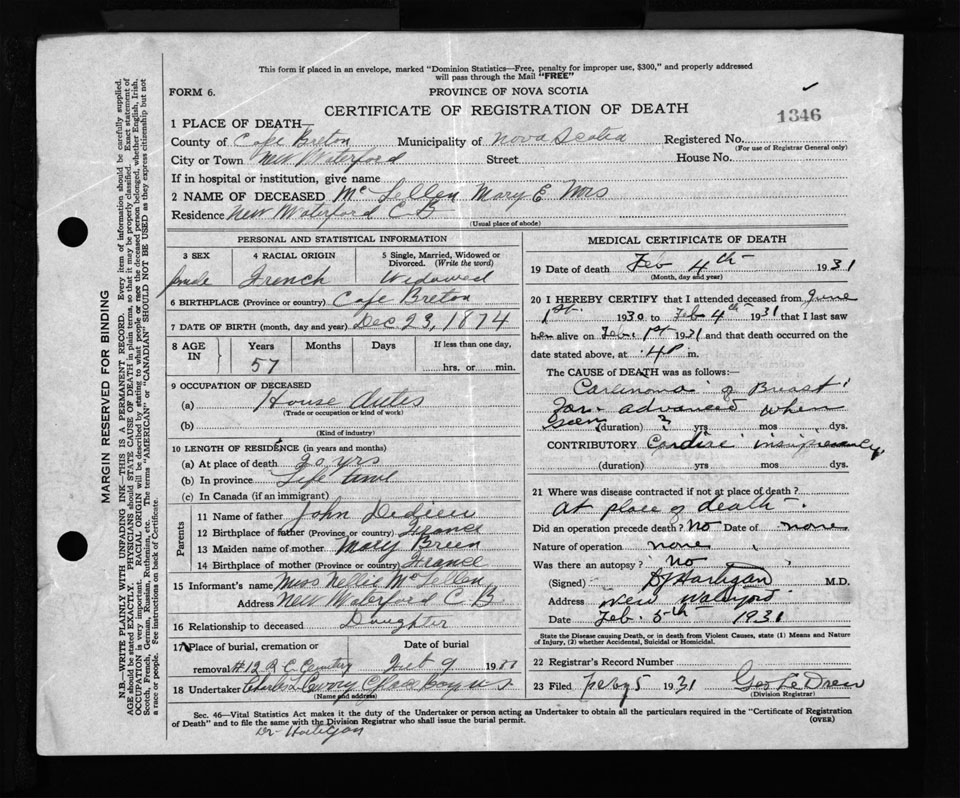 This form if placed in an envelope, marked "Dominion Statistics—Free, penalty for improper use, $300," and properly addressed
will pass through the Mail "FREE"
FORM 6.
PROVINCE OF NOVA SCOTIA
CERTIFICATE OF REGISTRATION OF DEATH
1346
1 PLACE OF DEATH—
County of Cape Breton Municipality of Nova Scotia Registered No.
(For use of Registrar General only)
City or Town New Waterford Street House No.
If in hospital or institution, give name
2 NAME OF DECEASED Mc Lellen Mary E Mrs
Residence New Waterford C B
(Usual place of abode)
PERSONAL AND STATISTICAL INFORMATION
3 SEX 4 RACIAL ORIGIN 5 Single, Married, Widowed or Divorced. (Write the word)
French Widowed
6 BIRTHPLACE (Province or country) Cape Breton
7 DATE OF BIRTH (month, day and year) Dec 23, 1874
8 AGE IN Years Months Days If less than one day,
57 hrs. or min.
9 OCCUPATION OF DECEASED
(a) House Duties
(Trade or occupation or kind of work)
(b)
(Kind of industry)
10 LENGTH OF RESIDENCE (in years and months)
(a) At place of death 20 yrs
(b) In province Life time
(c) In Canada (if an immigrant)
Parents
11 Name of father John
12 Birthplace of father (Province or country) France
13 Maiden name of mother Mary Breen
14 Birthplace of mother (Province or country) France
15 Informant's name Miss Nellie Mc Lellen
Address New Waterford C B
16 Relationship to deceased Daughter
17 Place of burial, cremation or removal Date of burial
#12 R C Cemetry 9 19
18 Undertaker Charles Curry Glace Bay NS
(Name and address)
MEDICAL CERTIFICATE OF DEATH
19 Date of death Feb 4th 1931
(Month, day and year)
20 I HEREBY CERTIFY that I attended deceased from June
1st. 1930 to Feb 4th 1931 that I last saw
her alive on Feb. 1st 1931 and that death occurred on the
date stated above, at 4 P m.
The CAUSE of DEATH was as follows:
Carcinoma of Breast
far advanced when
seen (duration) 3 yrs mos dys.
CONTRIBUTORY Cardiac
(duration) yrs mos dys.
21 Where was disease contracted if not at place of death?
at place of death.
Did an operation precede death? No Date of none
Nature of operation none
Was there an autopsy? No
(Signed) Hartigan M.D.
Address New Waterford
Date Feb. 5th 1931
State the Disease causing Death, or in death from Violent Causes, state (1) Means and Nature
of Injury, (2) whether Accidental, Suicidal or Homicidal.
22 Registrar's Record Number
23 Filed 5 1931 Geo Le Drew
(Division Registrar)
Sec. 46—Vital Statistics Act makes it the duty of the Undertaker or person acting as Undertaker to obtain all the particulars required in the "Certificate of Registration
of Death" and to file the same with the Division Registrar who shall issue the burial permit.
(OVER)
Dr Hartigan
MARGIN RESERVED FOR BINDING
N.B.—WRITE PLAINLY WITH UNFADING INK—THIS IS A PERMANENT RECORD. Every item of information should be carefully supplied.
AGE should be stated EXACTLY. PHYSICIANS should STATE CAUSE OF DEATH in plain terms, so that it may be properly classified. Exact statement of
OCCUPATION is very important. RACIAL ORIGIN will be described by stating to what people or race the deceased person belonged, whether English, Irish,
Scotch, French, German, Russian, Ruthenian, etc. The terms "AMERICAN" or "CANADIAN" SHOULD NOT BE USED as they express citizenship but not
a race or people. See instructions on back of Certificate.